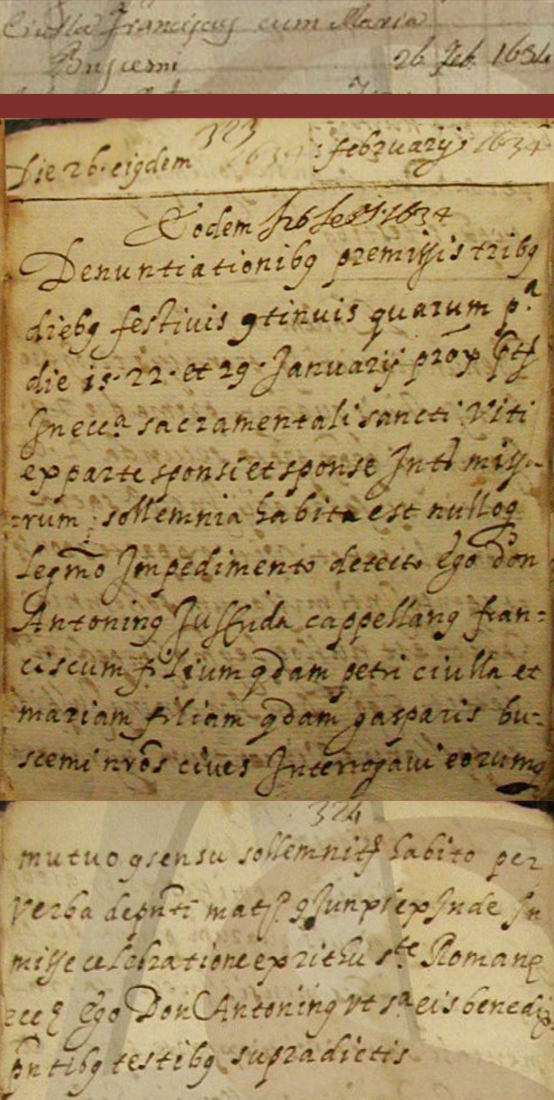 Ciulla Franciscus cum Maria
Buscemi 26 Feb. 1634
323
Die 26 eiqdem februarij 1634
Eodem 1634
Denuntiationibq premissis tribq
diebq festivis 9tinuis quarum p.a
die 15. 22. et 29. Januarij prox
In ecc.a sacramentali sancti Viti
ex parte sponsi et sponse Int miss-
rum sollemnia habita est nulloq
legmo Impedimento detecto Ego don
Antoninq Juffrida cappellanq fran=
ciscum filium qdam petri ciulla et
mariam filiam qdam gasparis bu=
scemi nros cives Interrogavi eorumq
324
mutuo 9sensu sollemnit habito per
verba depnti mat 9Junxi exInde In
misse celebratione ex rithu s.te Romane
ecc.e Ego Don Antoninq ut s.a eis benedixi
pntibq testibq supradictis